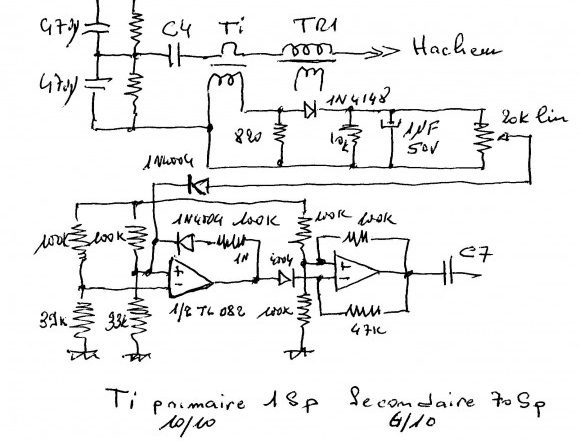 C4 Ti TR1
47µ
Hacheur
47µ
1N4148
820 10k 1µF 50V 20K lin
1N4004
1N4004 100K 100K 100K
100K 100K 1N
4004
39K 33K 1/2 TL 082 100K 47K C7
Ti primaire 1Sp Secondaire 70Sp
10/10 6/10